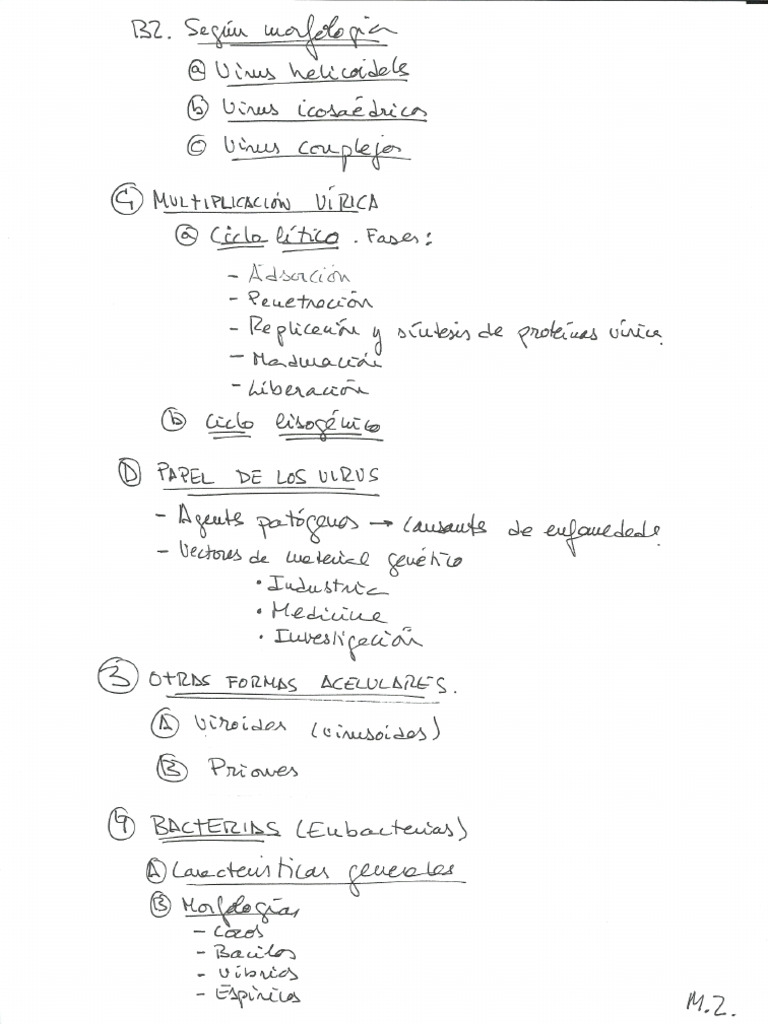 B2. Según morfología
ⓐ Virus helicoidales
ⓑ Virus icosaédricos
ⓒ Virus complejos
Ⓒ MULTIPLICACIÓN VÍRICA
ⓐ Ciclo lítico. Fases:
- Adsorción
- Penetración
- Replicación y síntesis de proteínas víricas
- Maduración
- Liberación
ⓑ Ciclo lisogénico
Ⓓ PAPEL DE LOS VIRUS
- Agentes patógenos → causantes de enfermedades.
- Vectores de material genético
• Industria
• Medicina
• Investigación
③ OTRAS FORMAS ACELULARES.
Ⓐ Viroides (virusoides)
Ⓑ Priones
④ BACTERIAS (Eubacterias)
Ⓐ Características generales
Ⓑ Morfologías
- Cocos
- Bacilos
- Vibrios
- Espirilos
M.2.